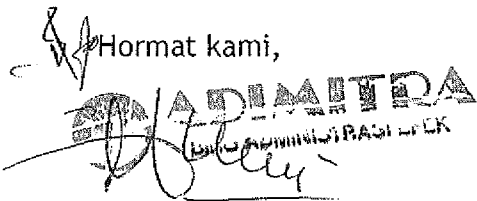 Hormat kami,
ADIMITRA
BIRO ADMINISTRASI EFEK